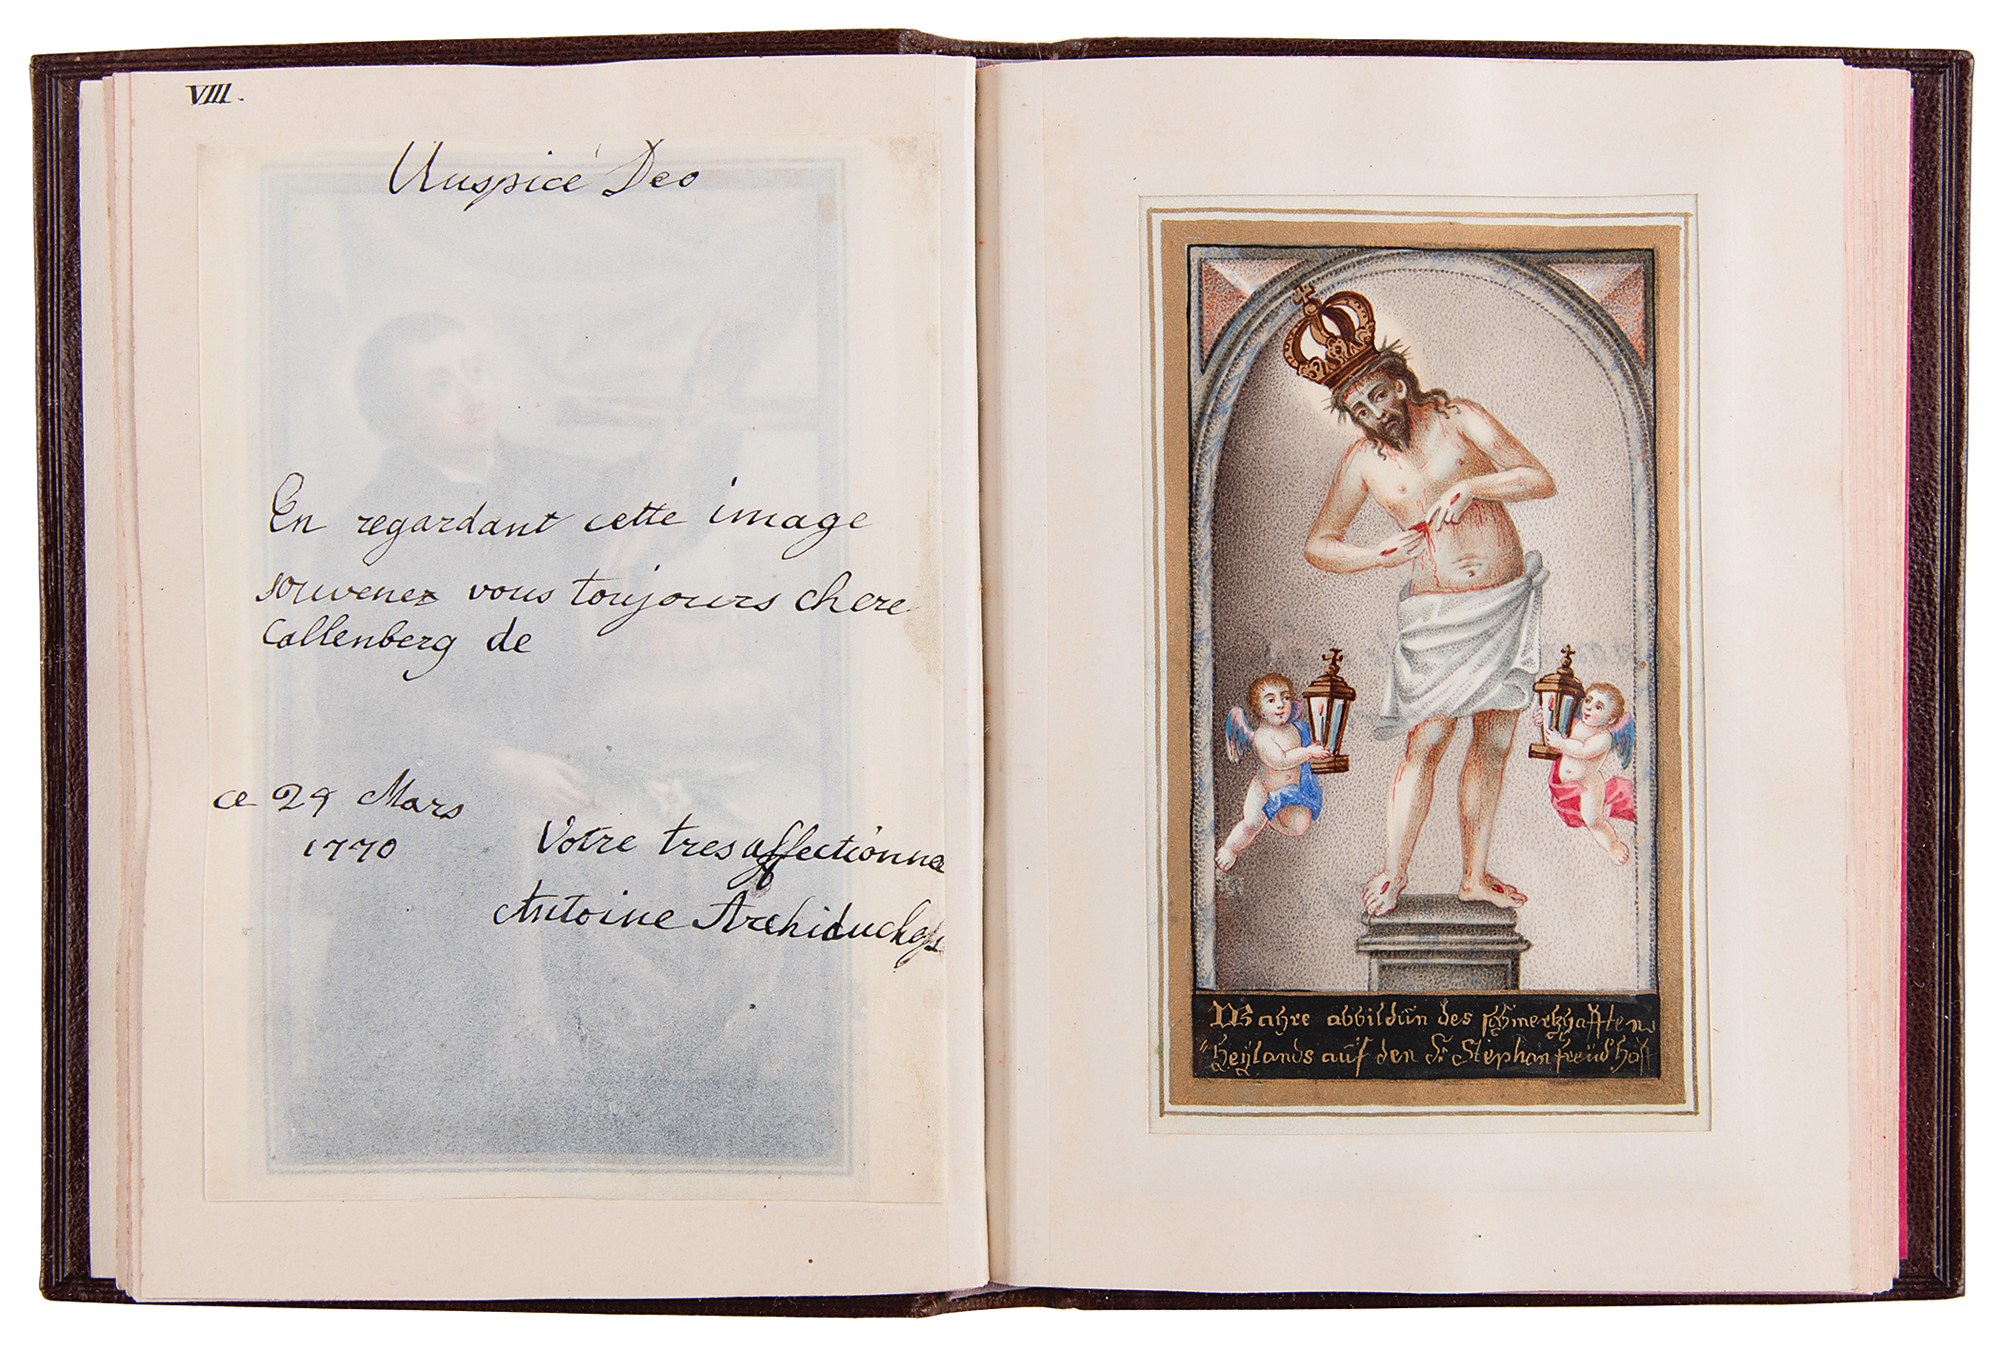 VIII.
Auspice Deo
En regardant cette image
souvenez vous toujours chere
Callenberg de
ce 29 Mars
1770
Votre tres affectionne
Antoine Archiduchesse
Wahre abbildün des schmertzhafften
Heÿlands aüf den St Stephan freüdhoff